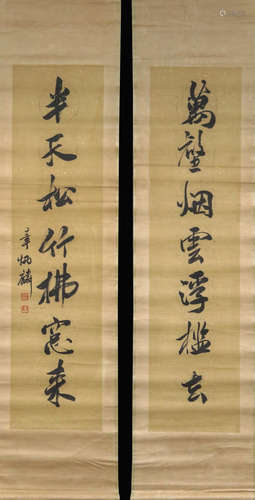 萬壑烟雲浮檻去
半天松竹拂窓来
章炳麟